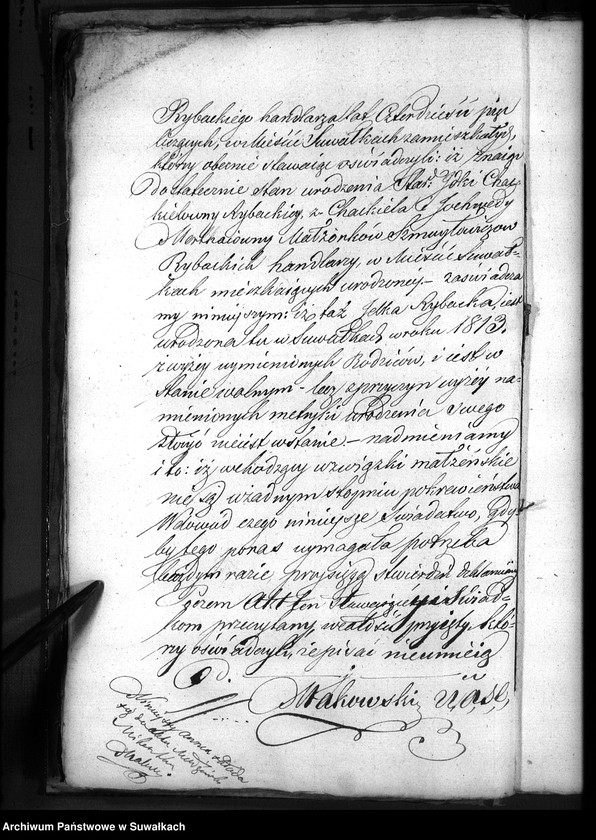 Rybackiego handlarza lat Czterdzieści pięć
liczących, w Mieście Suwałkach zamieszkałych
którzy obecnie stawaiąc oświadczyli: iż znaią
dostatecznie stan urodzenia Star: Jdki Chac-
kielowny Rybackiey, z Chackiela i
Małżonków Szmuylowiczow
Rybackich handlarzy, w Mieście Suwał-
kach mieszkaiących urodzoney, – zaświadcza
my ninieyszym: iż taż Jetka Rybacka iest
urodzona tu w Suwałkach w roku 1813.
z wyżey wymienionych Rodziców, i iest w
stanie wolnym – lecz z przyczyn wyżey na-
mienionych metryki urodzenia swego
złożyć nieiest wstanie. – nadmieniamy
i to: iż wchodzący w związki małżeńskie
nie są w żadnym stopniu pokrewieństwa
Na dowód czego ninieysze Świadectwo, gdy
by tego po nas wymagała potrzeba
każdym razie przysięgą stwierdzić deklaruiemy
poczem Akt ten Stawaiącym i Świad-
kom przeczytany, został przyięty, któ-
rzy oświadczyli, że pisać nieumieią
Makowski U.A.S.C.
Ninieyszy